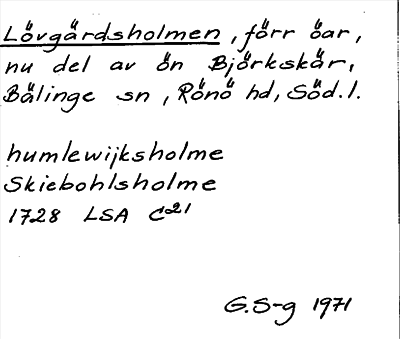 Lövgärdsholmen, förr öar,
nu del av ön Björkskär,
Bälinge sn, Rönö hd, Söd.l.
humlewijksholme
Skiebohlsholme
1728 LSA C21
G.S-g 1971